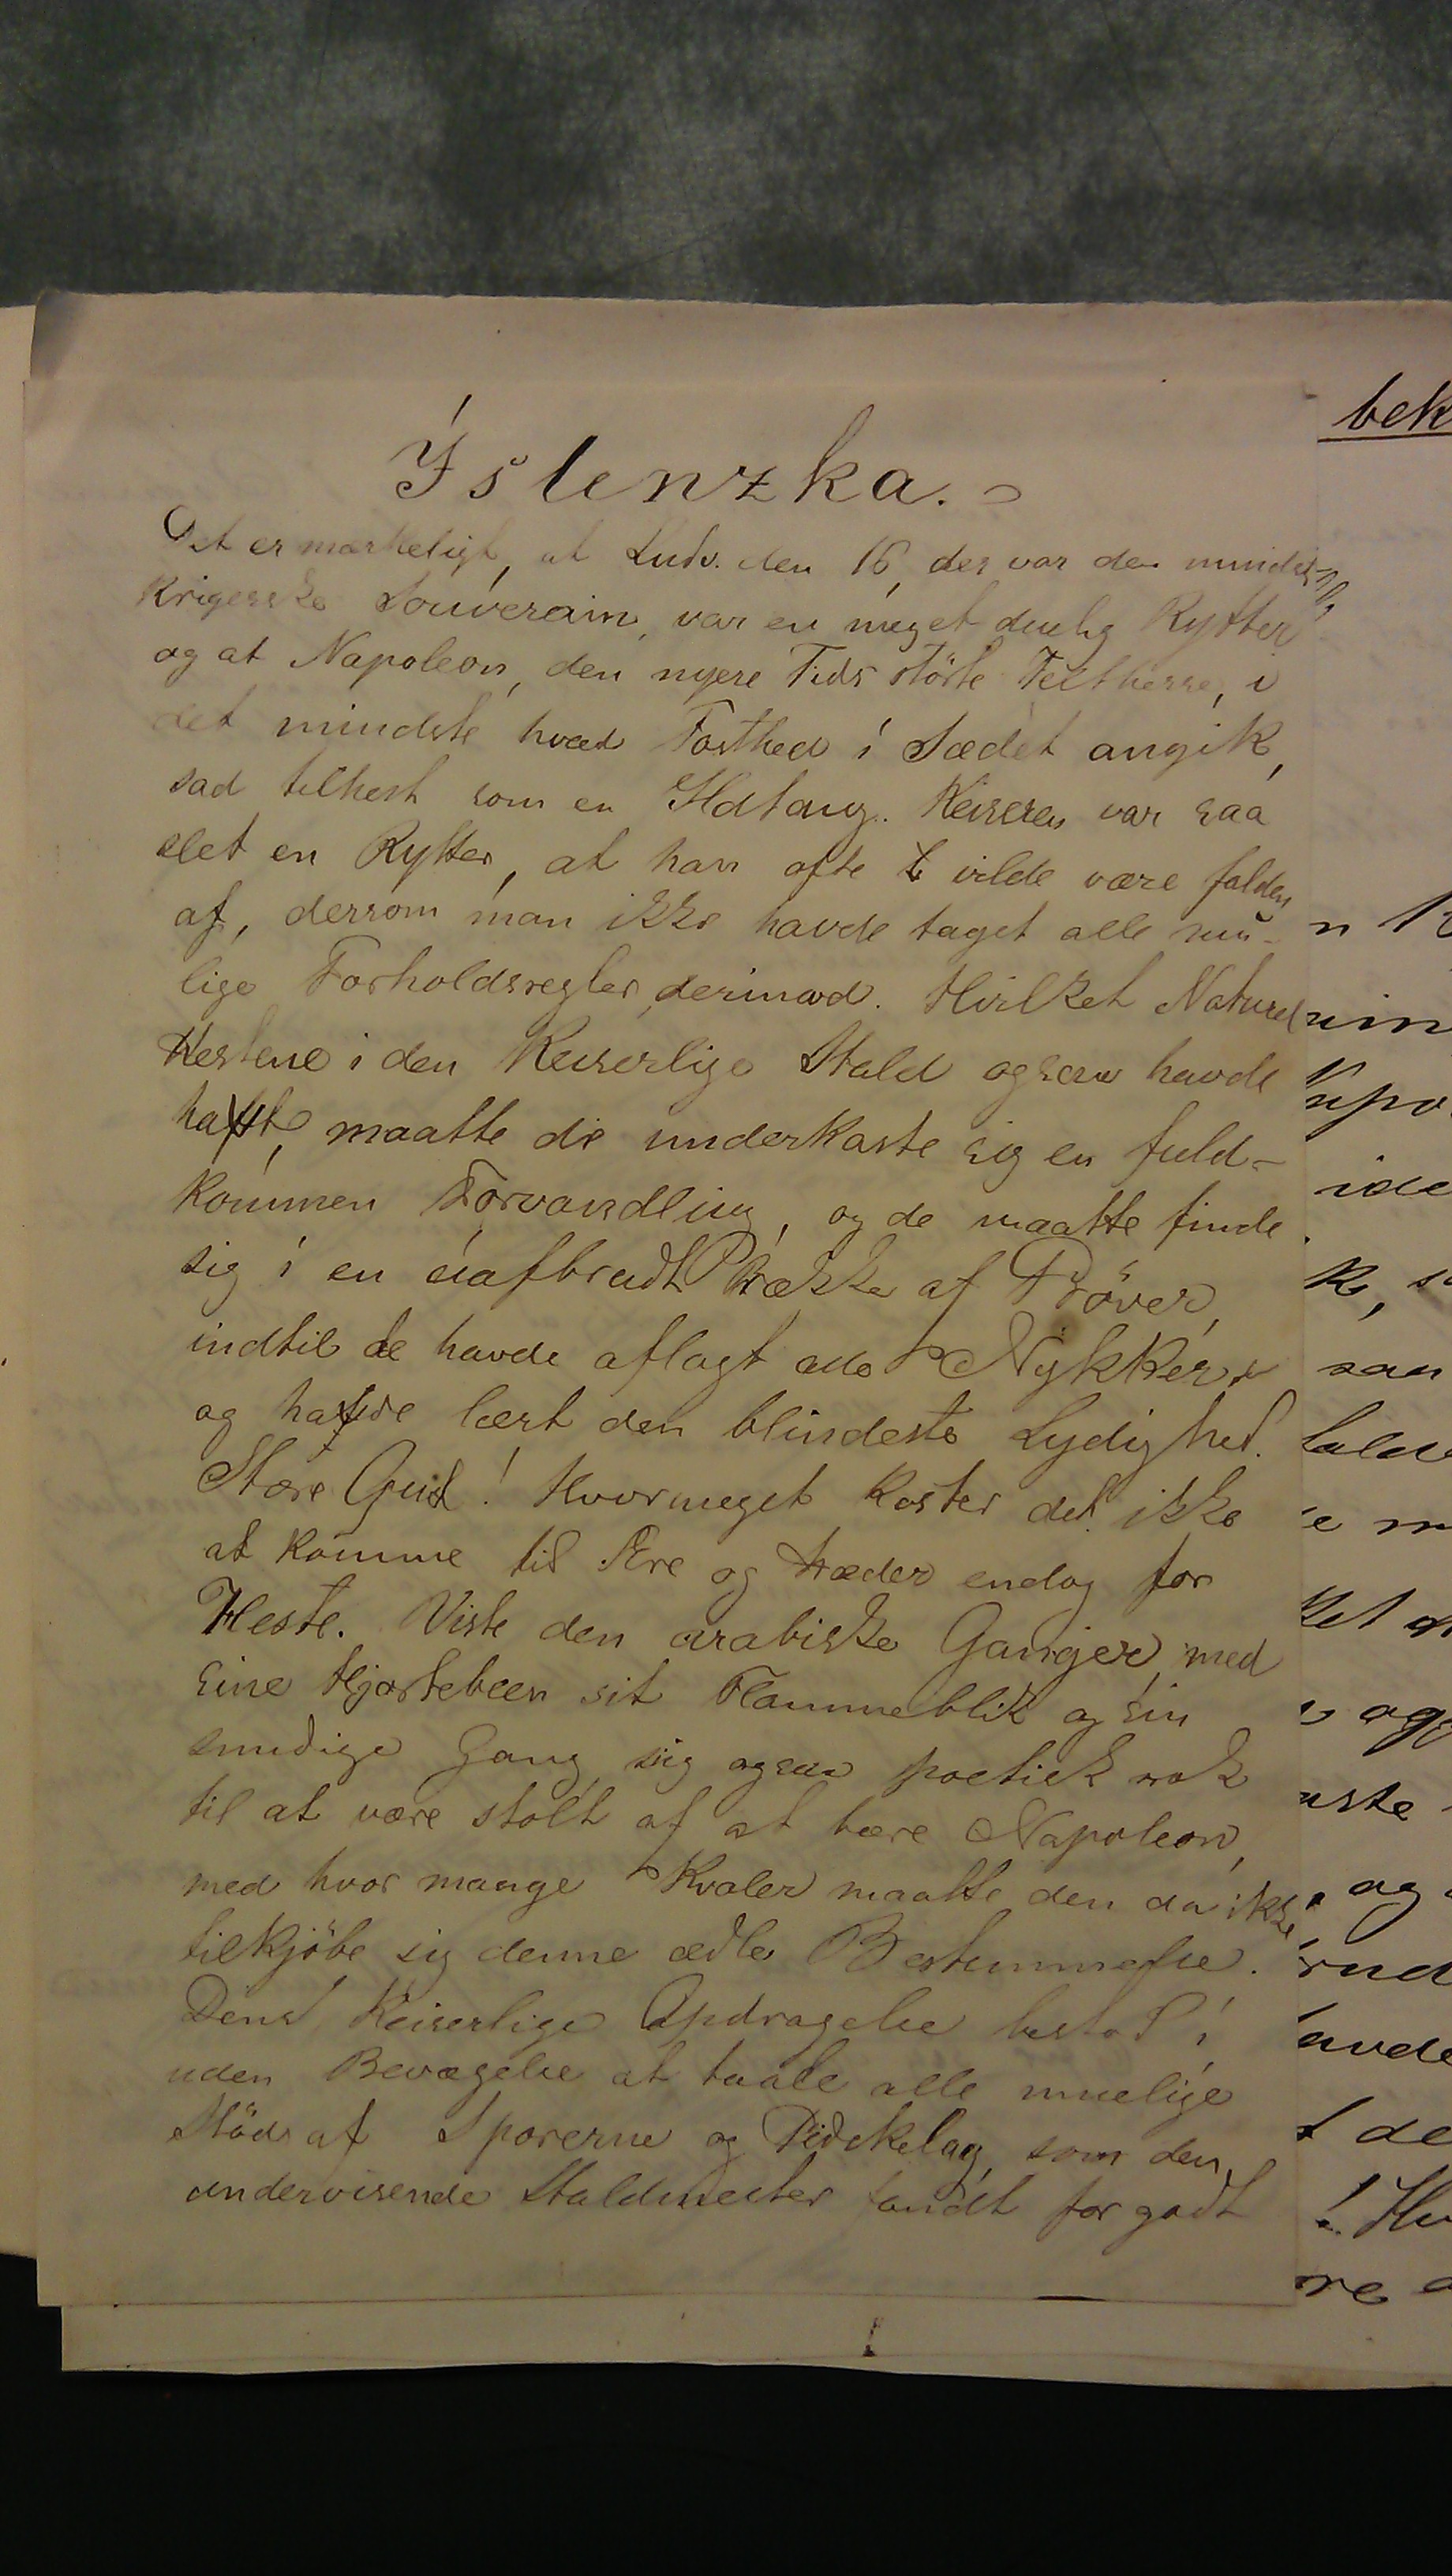 Íslenzka.
Det er mærkeligt, at Ludv. den 16, der var den mindst
Krigerske Souverain, var en meget duelig Rytter
og at Napoleon, den nyere Tids störste Feltherre, i
det mindste hvad Fasthed i Sædet angik,
sad tilhest som en Ildtang. Keiseren var saa
slet en Rytter, at han ofte vilde være falden
af, dersom man ikke havde taget alle mu-
lige Forholdsregler derimod. Hvilket Naturel
Hestene i den Keiserlige Stald ogsaa havde
havt, maatte de underkaste sig en fuld-
kommen Forvandling, og de maatte finde
sig i en uafbrudt Række af Pröver,
indtil de havde aflagt alle Nykker
og havde lært den blindeste Lydighed.
Store Gud! Hvormeget koster det ikke
at komme til Ære og Hæder endog for
Heste. Viste den arabiske Ganger, med
sine Hjorteben sit Flammeblik og sin
smudige Gang, sig ogsaa poetisk nok
til at være stolt af at bære Napoleon,
med hvor mange Kvaler maatte den da ikke
tilkjöbe sig denne ædle Bestemmelse.
Dens Keiserlige Opdragelse bestod i
uden Bevægelse at taale alle muelige
Stöd af Sporerne og Pidskelag, som den
undervisende Staldmester fandt for godt
bek